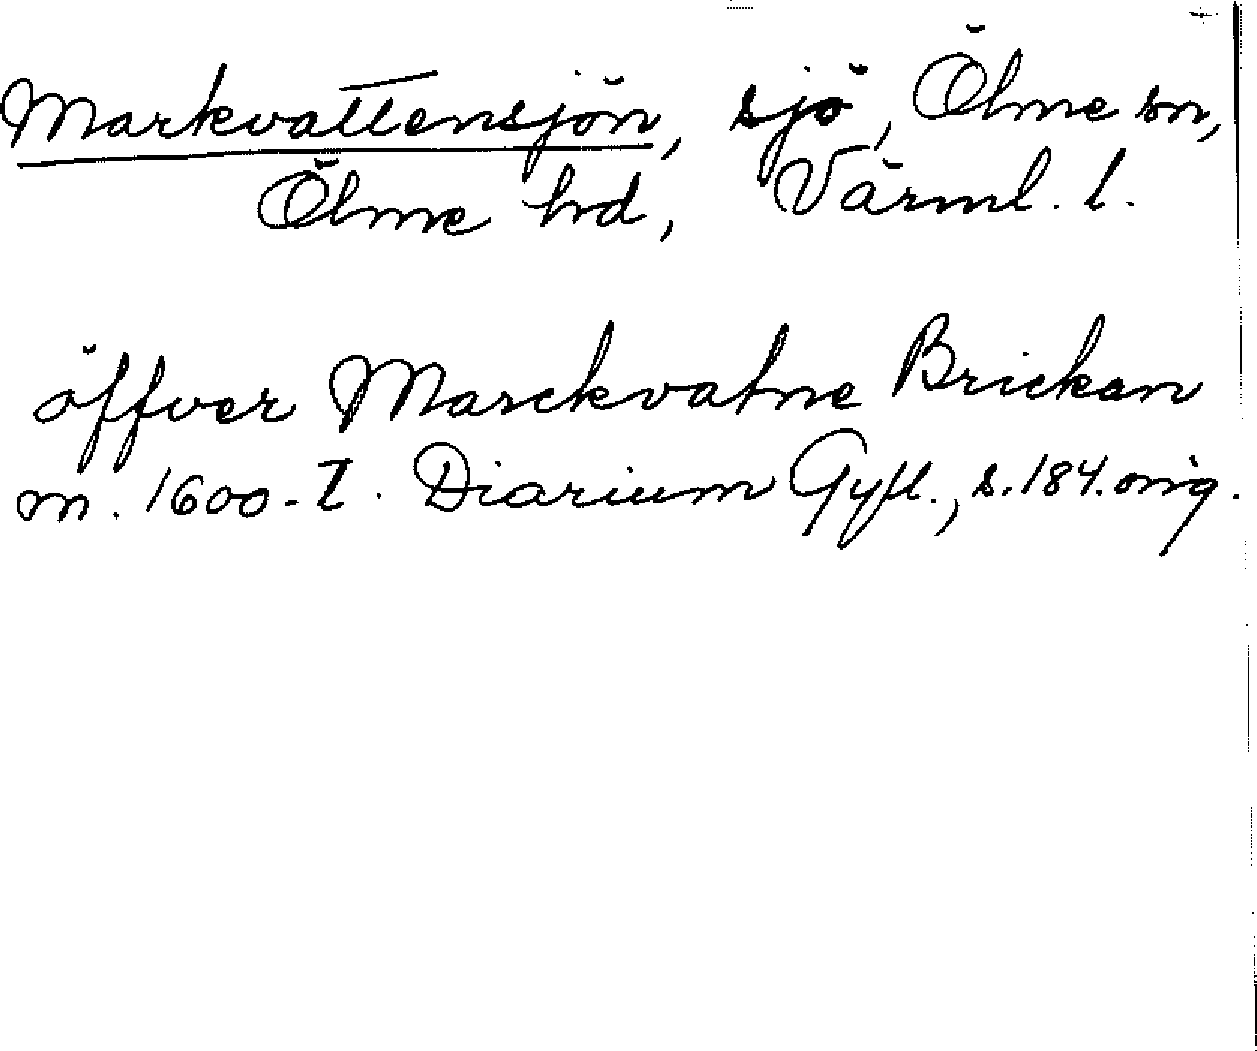 Markvattensjön, sjö, Ölme sn,
Ölme hd, Värml. l.
öffver Marckvatne Brickan
m. 1600-t. Diarium Gyll., s. 184. orig.